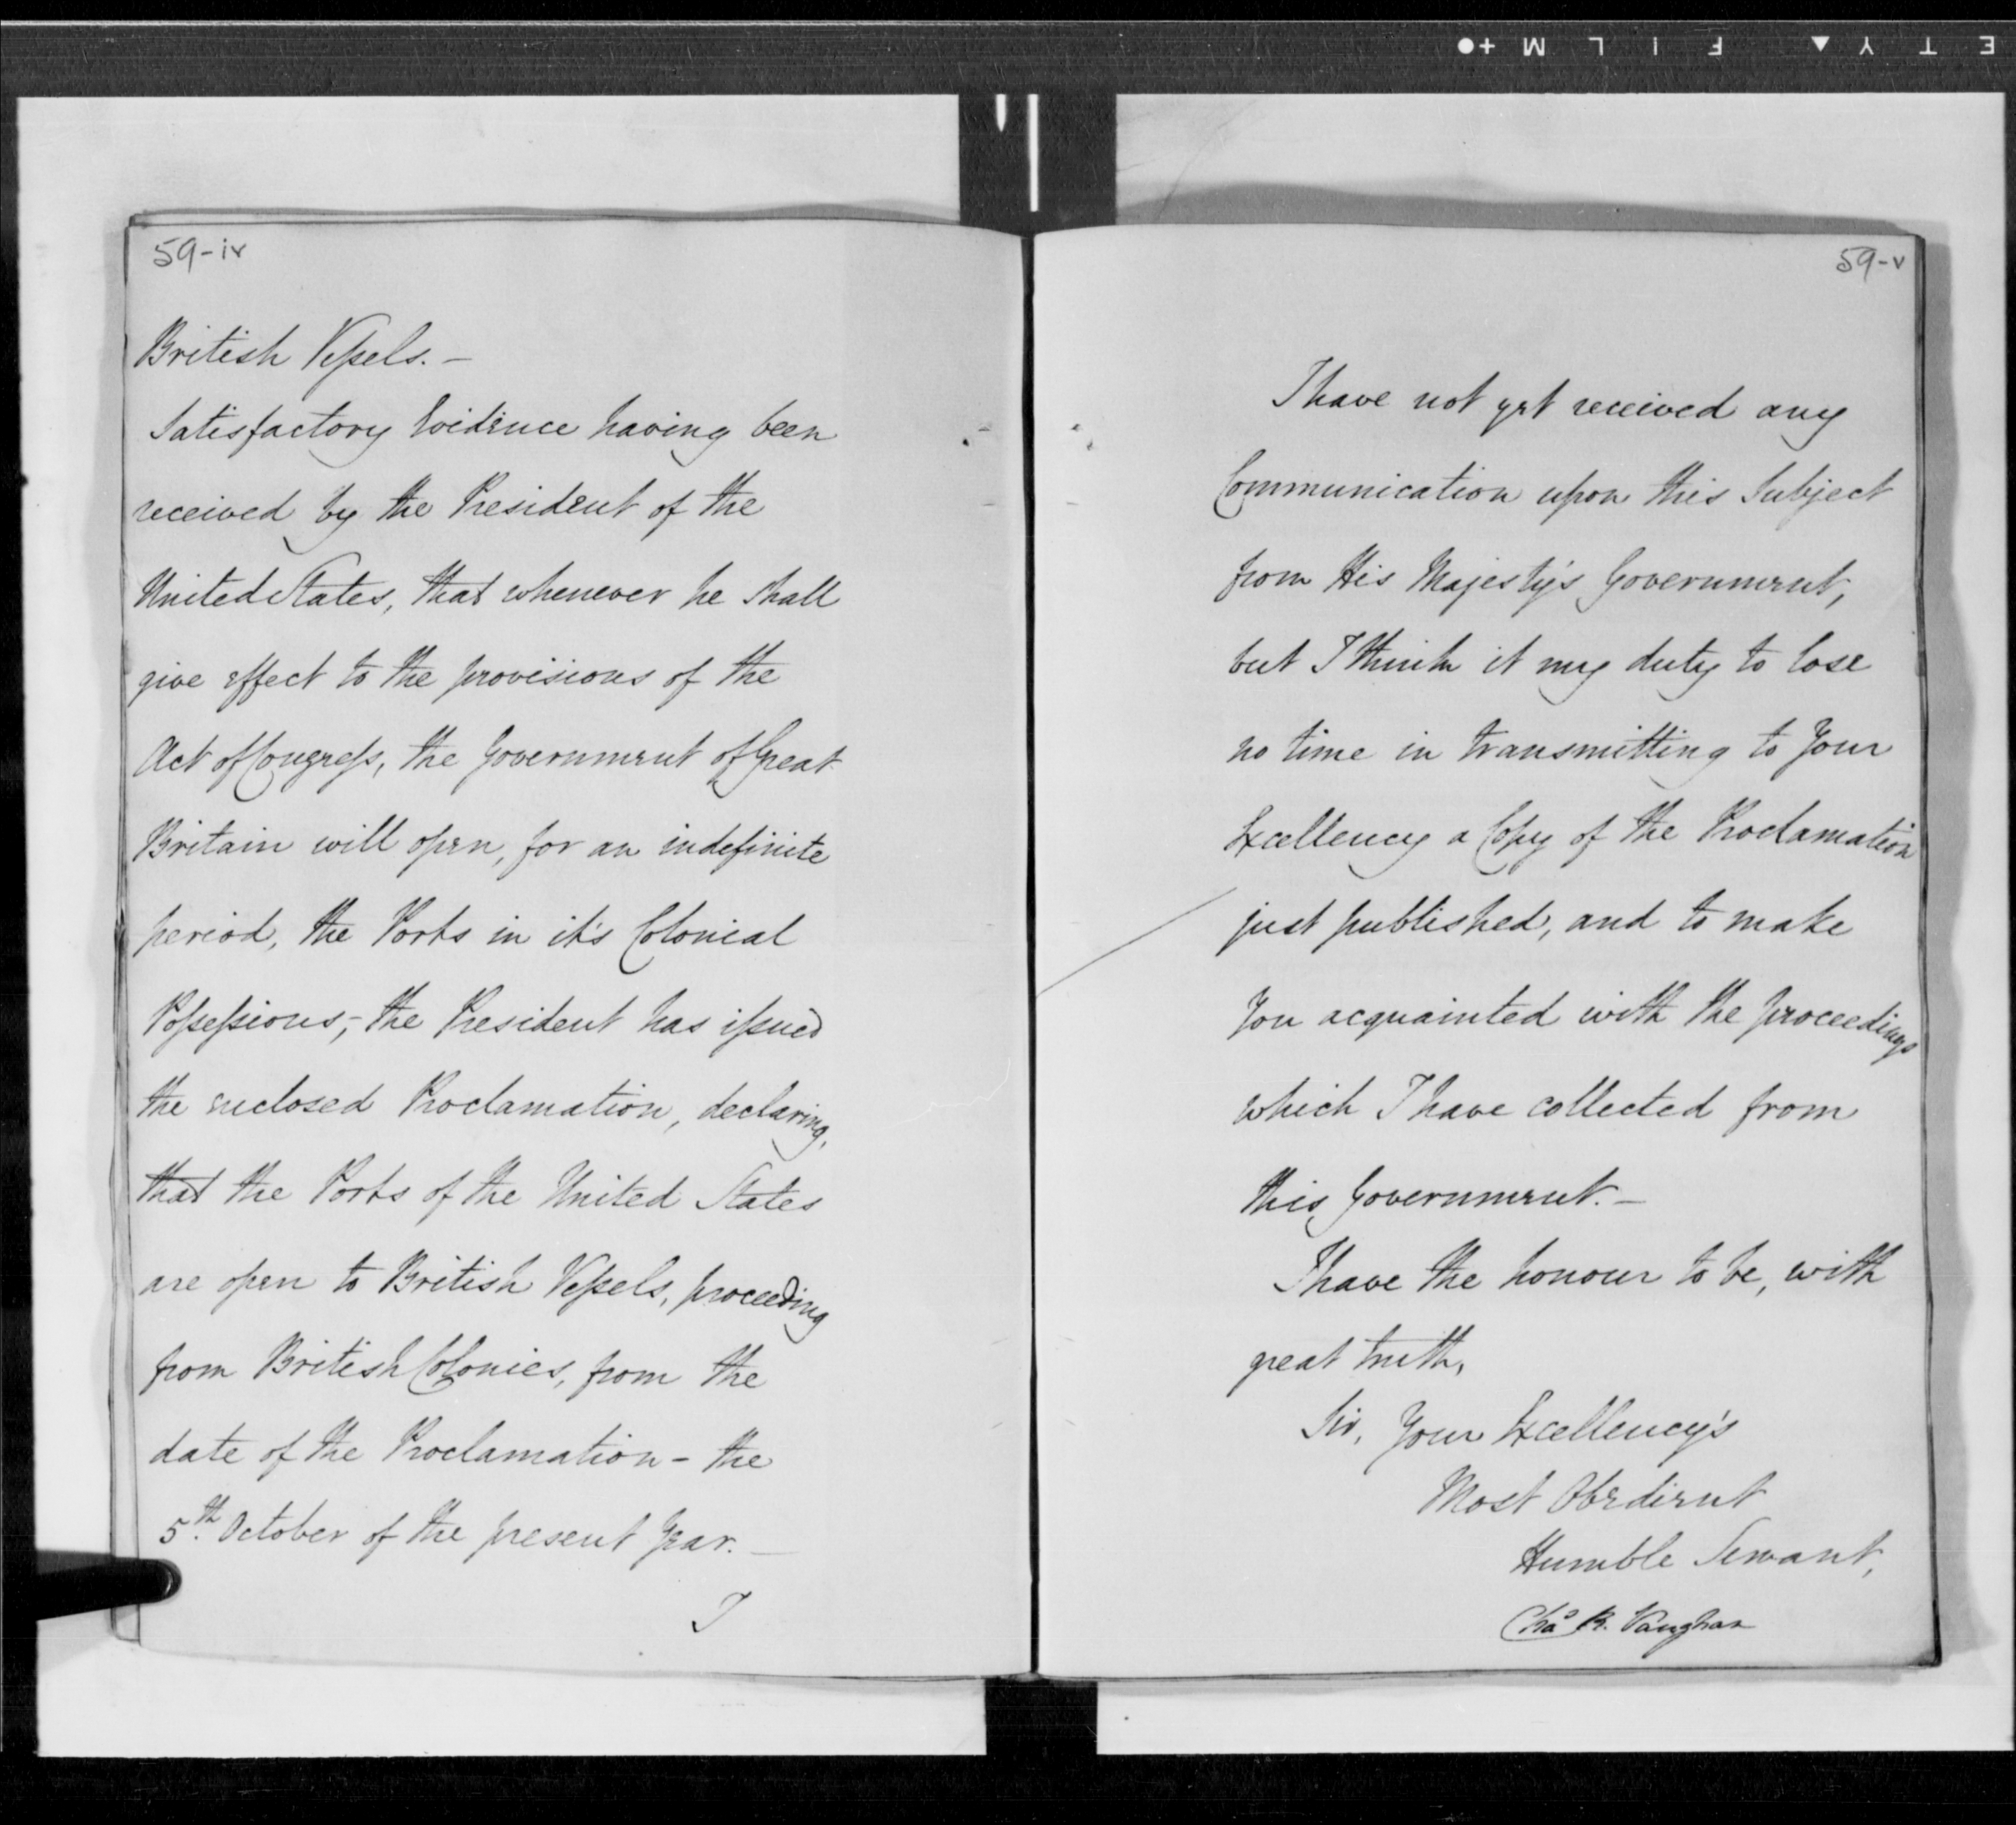 E T Y ▲ F I L M +●
59-iv
British Vessels. —
Satisfactory Evidence having been
received by the President of the
United States, that whenever he shall
give effect to the provisions of the
Act of Congress, the Government of Great
Britain will open, for an indefinite
period, the Ports in it's Colonial
Possessions,- the President has issued
the enclosed Proclamation, declaring,
that the Ports of the United States
are open to British Vessels, proceeding
from British Colonies, from the
date of the Proclamation - the
5th. October of the present Year. —
I
59-v
I have not yet received any
Communication upon this Subject
from His Majesty's Government,
but I think it my duty to lose
no time in transmitting to Your
Excellency a Copy of the Proclamation
just published, and to make
You acquainted with the proceedings
which I have collected from
this Government. —
I have the honour to be, with
great truth,
Sir, Your Excellency's
Most Obedient
Humble Servant,
Chas R. Vaughan